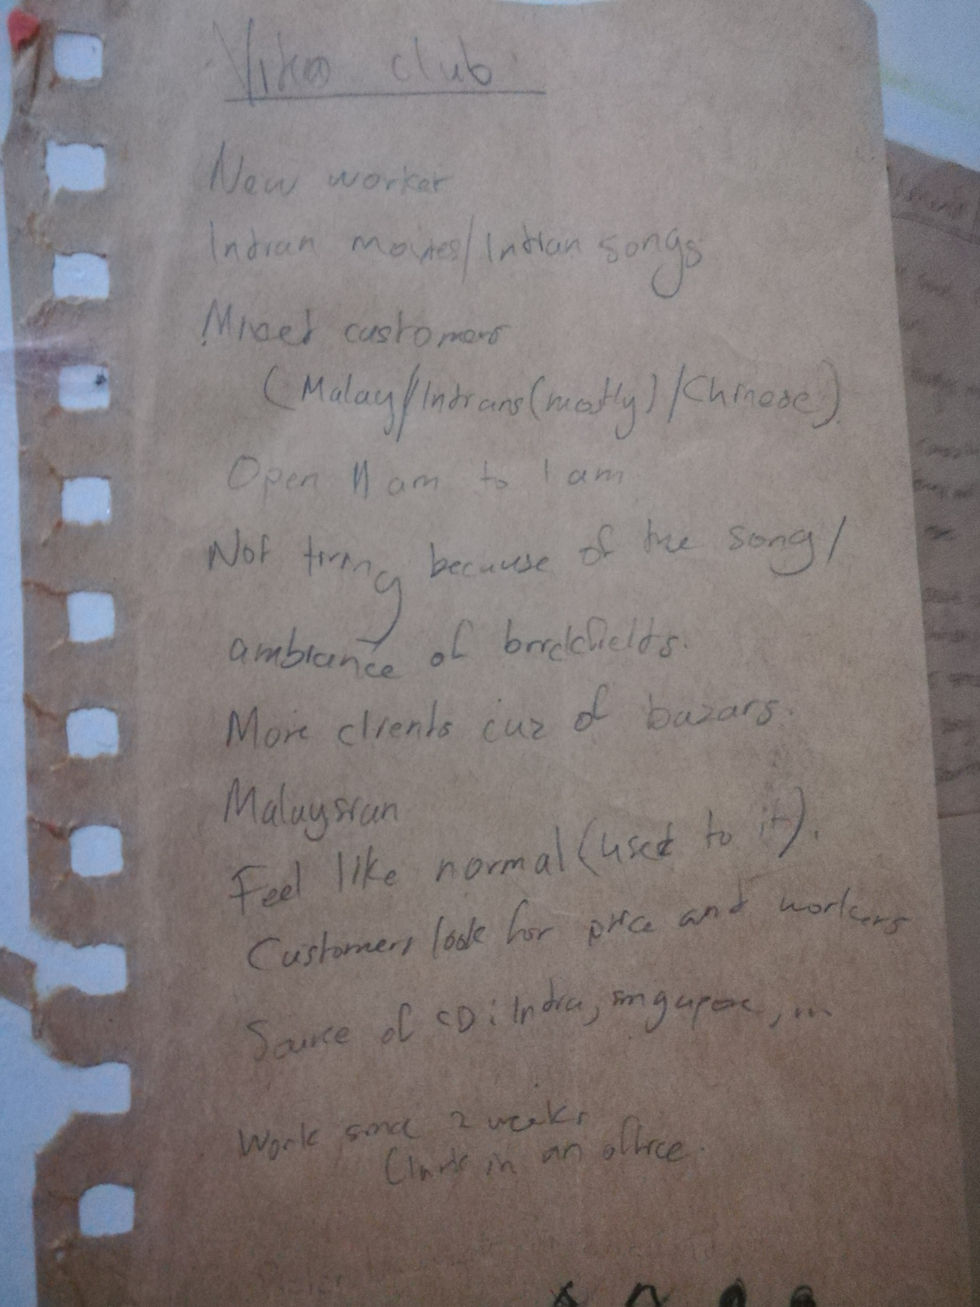 club
New worker
Indian movies/Indian songs
Mixed customers
(Malay/Indians(mostly)/Chinese)
Open 11 am to 1 am
Not tiring because of the song/
ambiance of brickfields.
More clients cuz of bazars.
Malaysian
Feel like normal (used to it).
Customers look for price and workers
Source of CD: India, singapore,
Work since 2 weeks
Clerk in an office.